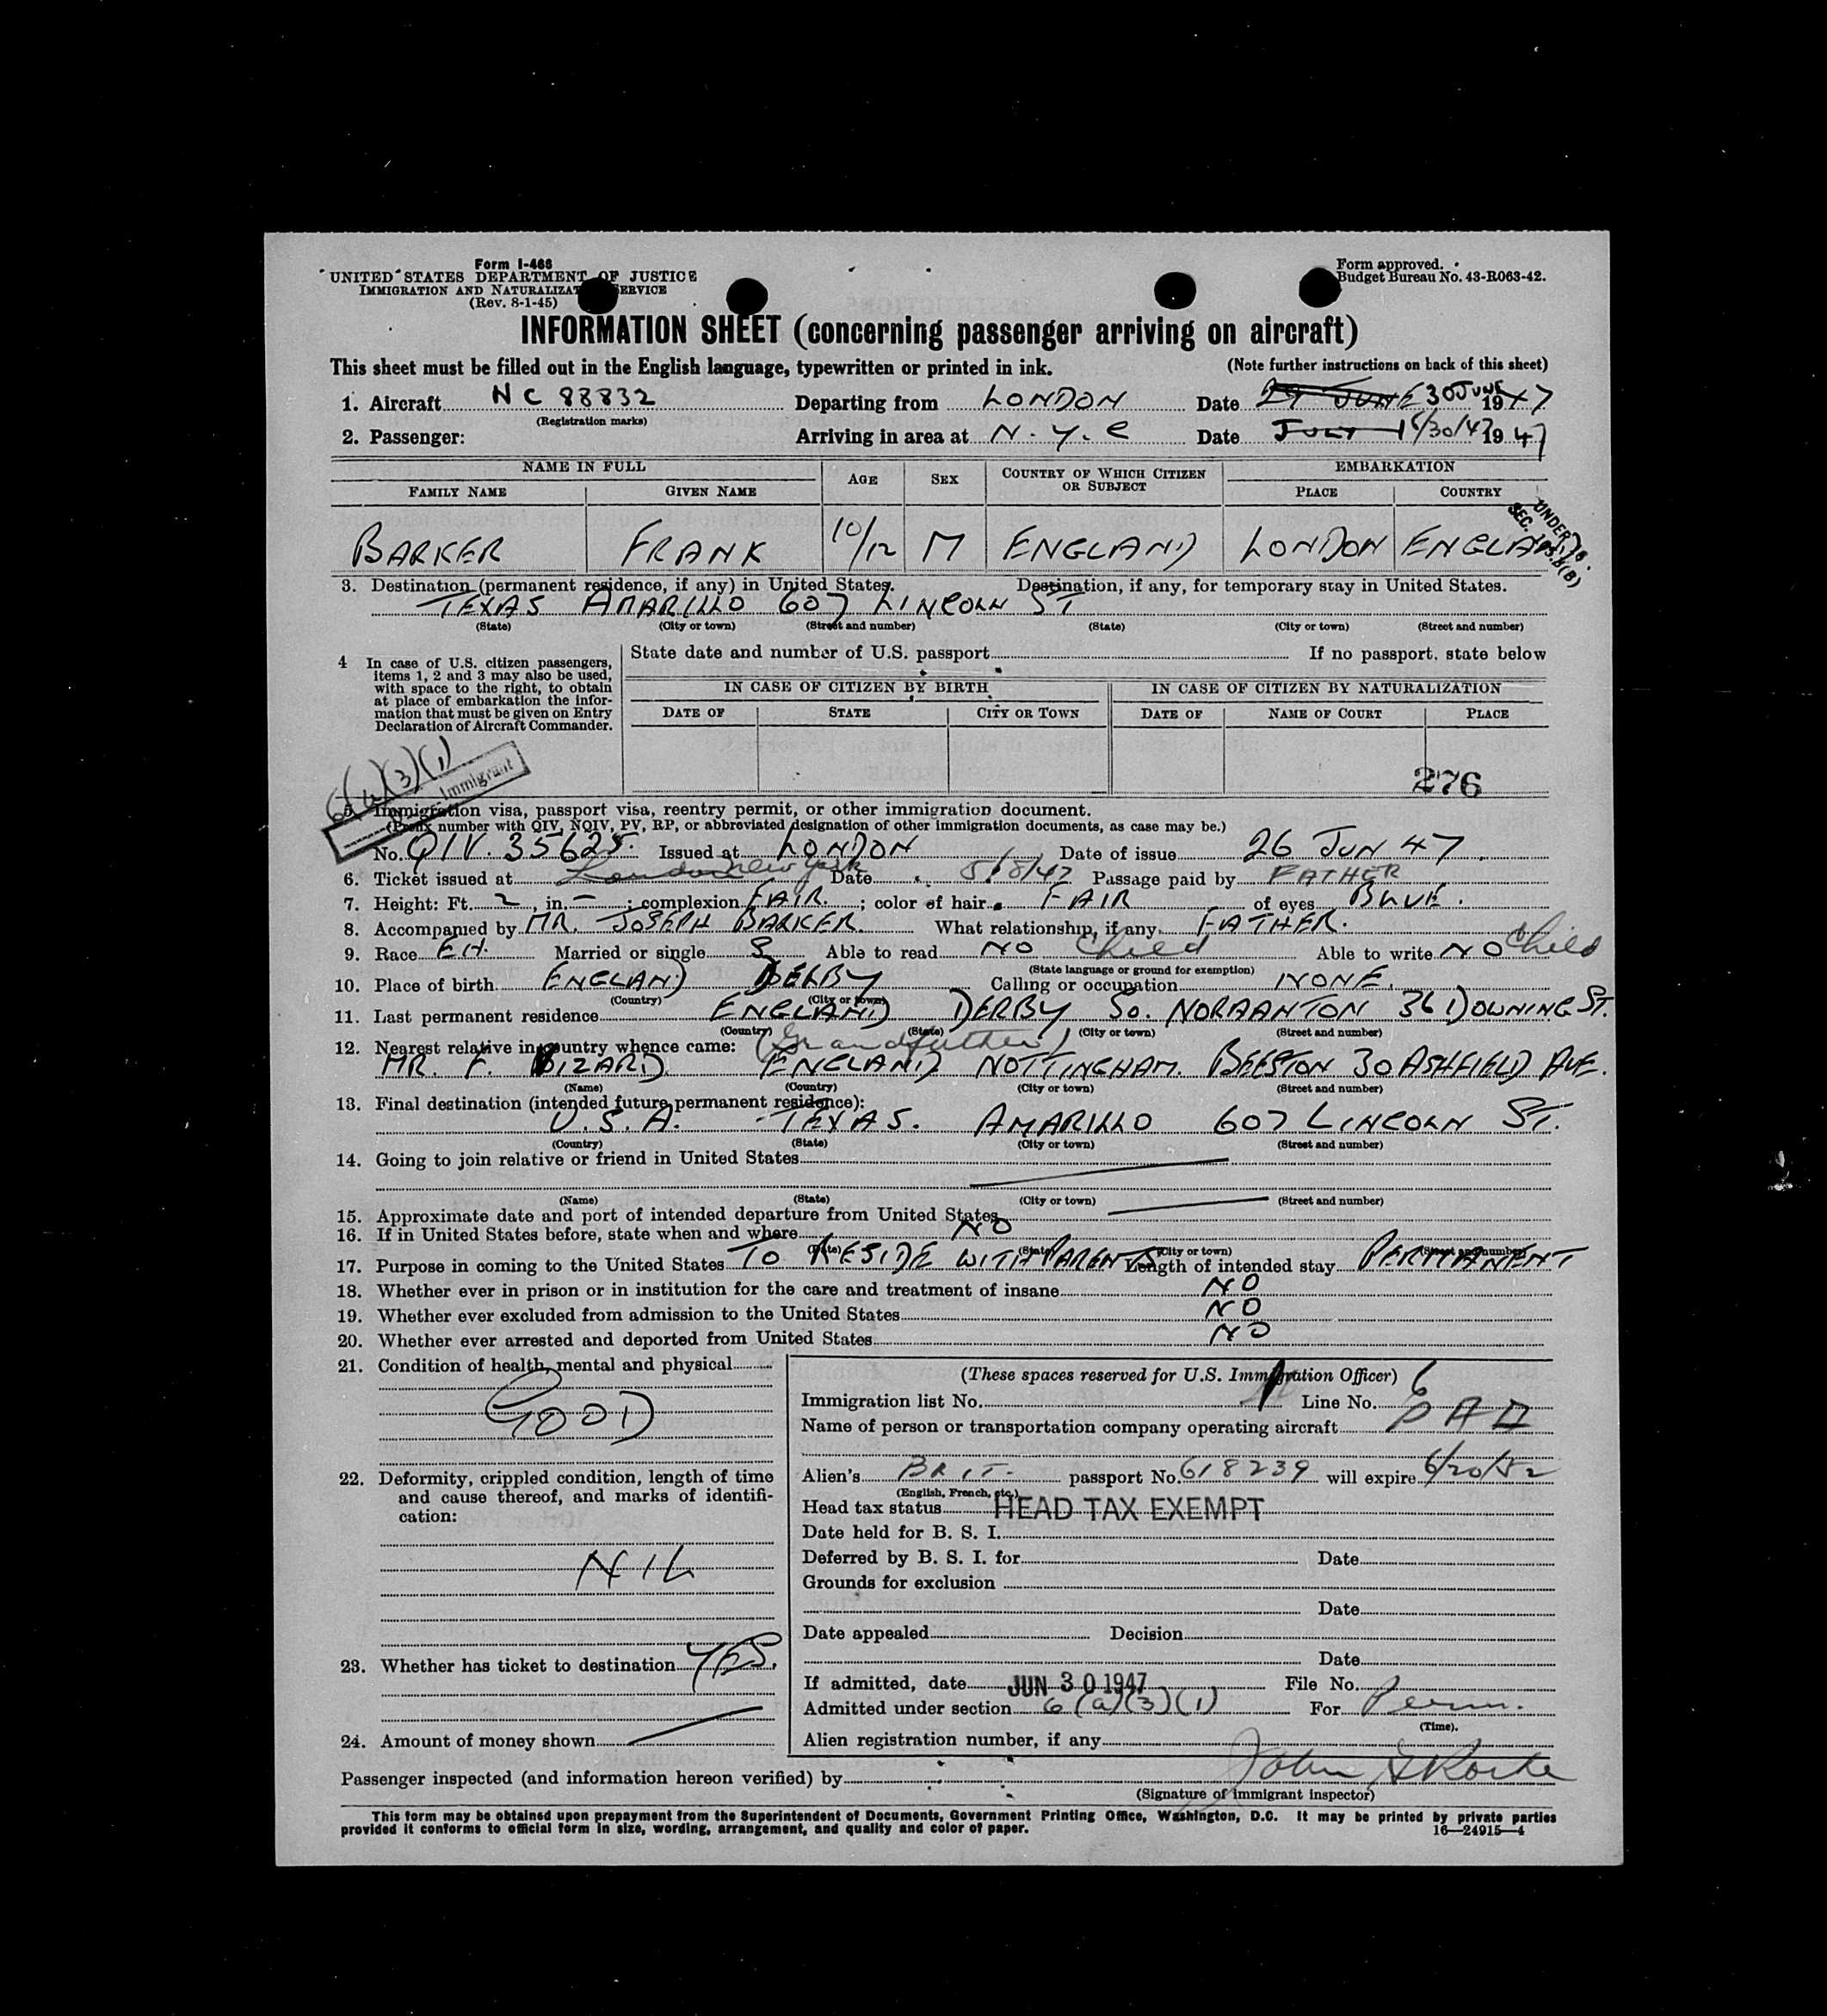 Form I-466
UNITED STATES DEPARTMENT OF JUSTICE
IMMIGRATION AND NATURALIZAT ERVICE
(Rev. 8-1-45)
Form approved.
Budget Bureau No. 43-R063-42.
INFORMATION SHEET (concerning passenger arriving on aircraft)
This sheet must be filled out in the English language, typewritten or printed in ink. (Note further instructions on back of this sheet)
1. Aircraft NC 88832 Departing from LONDON Date 29 JUNE 30 JUNE 1947
(Registration marks)
2. Passenger: Arriving in area at N.Y.C Date JULY 1 6/30/47 1947
NAME IN FULL AGE SEX COUNTRY OF WHICH CITIZEN OR SUBJECT EMBARKATION
FAMILY NAME GIVEN NAME PLACE COUNTRY
BARKER FRANK 10/12 M ENGLAND LONDON ENGLAND
UNDER 16.
SEC.
3. Destination (permanent residence, if any) in United States. Destination, if any, for temporary stay in United States.
TEXAS AMARILLO 607 LINCOLN ST
(State) (City or town) (Street and number) (State) (City or town) (Street and number)
4 In case of U.S. citizen passengers, items 1, 2 and 3 may also be used, with space to the right, to obtain at place of embarkation the information that must be given on Entry Declaration of Aircraft Commander.
State date and number of U.S. passport If no passport, state below
IN CASE OF CITIZEN BY BIRTH IN CASE OF CITIZEN BY NATURALIZATION
DATE OF STATE CITY OR TOWN DATE OF NAME OF COURT PLACE
276
6(a)(3)(1)
Immigrant
5. Immigration visa, passport visa, reentry permit, or other immigration document.
(Prefix number with QIV, NQIV, PV, RP, or abbreviated designation of other immigration documents, as case may be.)
No. QIV. 35625. Issued at LONDON Date of issue 26 JUN 47
6. Ticket issued at London New York Date 5/8/47 Passage paid by FATHER
7. Height: Ft. 2, in. — ; complexion FAIR. ; color of hair FAIR of eyes BLUE.
8. Accompanied by MR. JOSEPH BARKER. What relationship, if any FATHER.
9. Race EH. Married or single S Able to read NO Child Able to write NO Child
(State language or ground for exemption)
10. Place of birth ENGLAND DERBY Calling or occupation NONE.
(Country) (City or town)
11. Last permanent residence ENGLAND DERBY So. NORMANTON 36 DOWNING ST.
(Country) (State) (City or town) (Street and number)
12. Nearest relative in country whence came: (Grandfather)
MR. F. BIZARD ENGLAND NOTTINGHAM. BEESTON 30 ASHFIELD AVE.
(Name) (Country) (City or town) (Street and number)
13. Final destination (intended future permanent residence):
U.S.A. TEXAS. AMARILLO 607 LINCOLN ST.
(Country) (State) (City or town) (Street and number)
14. Going to join relative or friend in United States
(Name) (State) (City or town) (Street and number)
15. Approximate date and port of intended departure from United States
16. If in United States before, state when and where NO
(Date) (State) (City or town) (Street and number)
17. Purpose in coming to the United States TO RESIDE WITH PARENTS Length of intended stay PERMANENT
18. Whether ever in prison or in institution for the care and treatment of insane NO
19. Whether ever excluded from admission to the United States NO
20. Whether ever arrested and deported from United States NO
21. Condition of health, mental and physical
GOOD
22. Deformity, crippled condition, length of time and cause thereof, and marks of identification:
NIL
23. Whether has ticket to destination YES.
24. Amount of money shown
(These spaces reserved for U.S. Immigration Officer)
Immigration list No. 1 Line No. 6
Name of person or transportation company operating aircraft PAA
Alien's BRIT. passport No. 618239 will expire 6/20/52
(English, French, etc.)
Head tax status HEAD TAX EXEMPT
Date held for B. S. I.
Deferred by B. S. I. for Date
Grounds for exclusion
Date
Date appealed Decision
Date
If admitted, date JUN 30 1947 File No.
Admitted under section 6(a)(3)(1) For Perm.
(Time).
Alien registration number, if any
Passenger inspected (and information hereon verified) by John
(Signature of immigrant inspector)
This form may be obtained upon prepayment from the Superintendent of Documents, Government Printing Office, Washington, D.C. It may be printed by private parties
provided it conforms to official form in size, wording, arrangement, and quality and color of paper. 16—24915—4